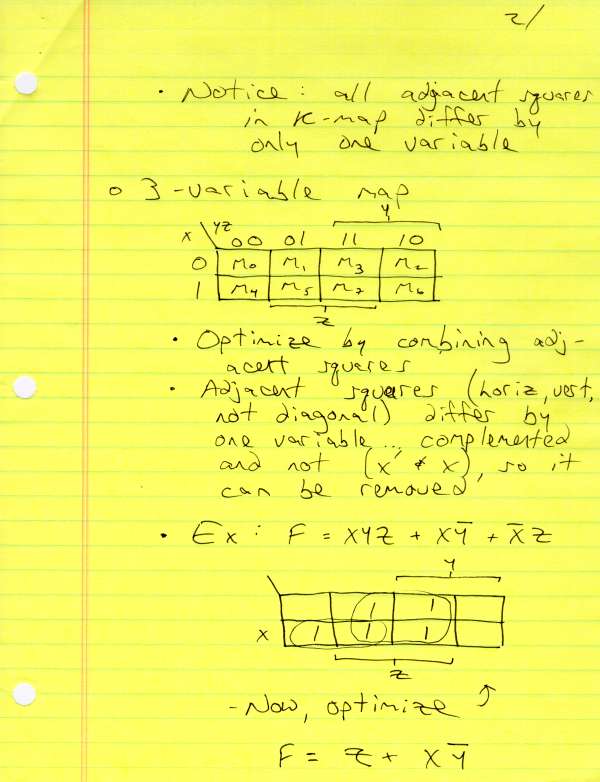 2/
• Notice: all adjacent squares
in K-map differ by
only one variable
o 3-variable map
Y
X \ YZ 00 01 11 10
0 m₀ m₁ m₃ m₂
1 m₄ m₅ m₇ m₆
Z
• Optimize by combining adj-
acent squares
• Adjacent squares (horiz, vert,
not diagonal) differ by
one variable... complemented
and not (x' & x), so it
can be removed
• Ex: F = XYZ + XY̅ + X̅Z
Y
1 1
X 1 1 1
Z
- Now, optimize
F = Z + XY̅